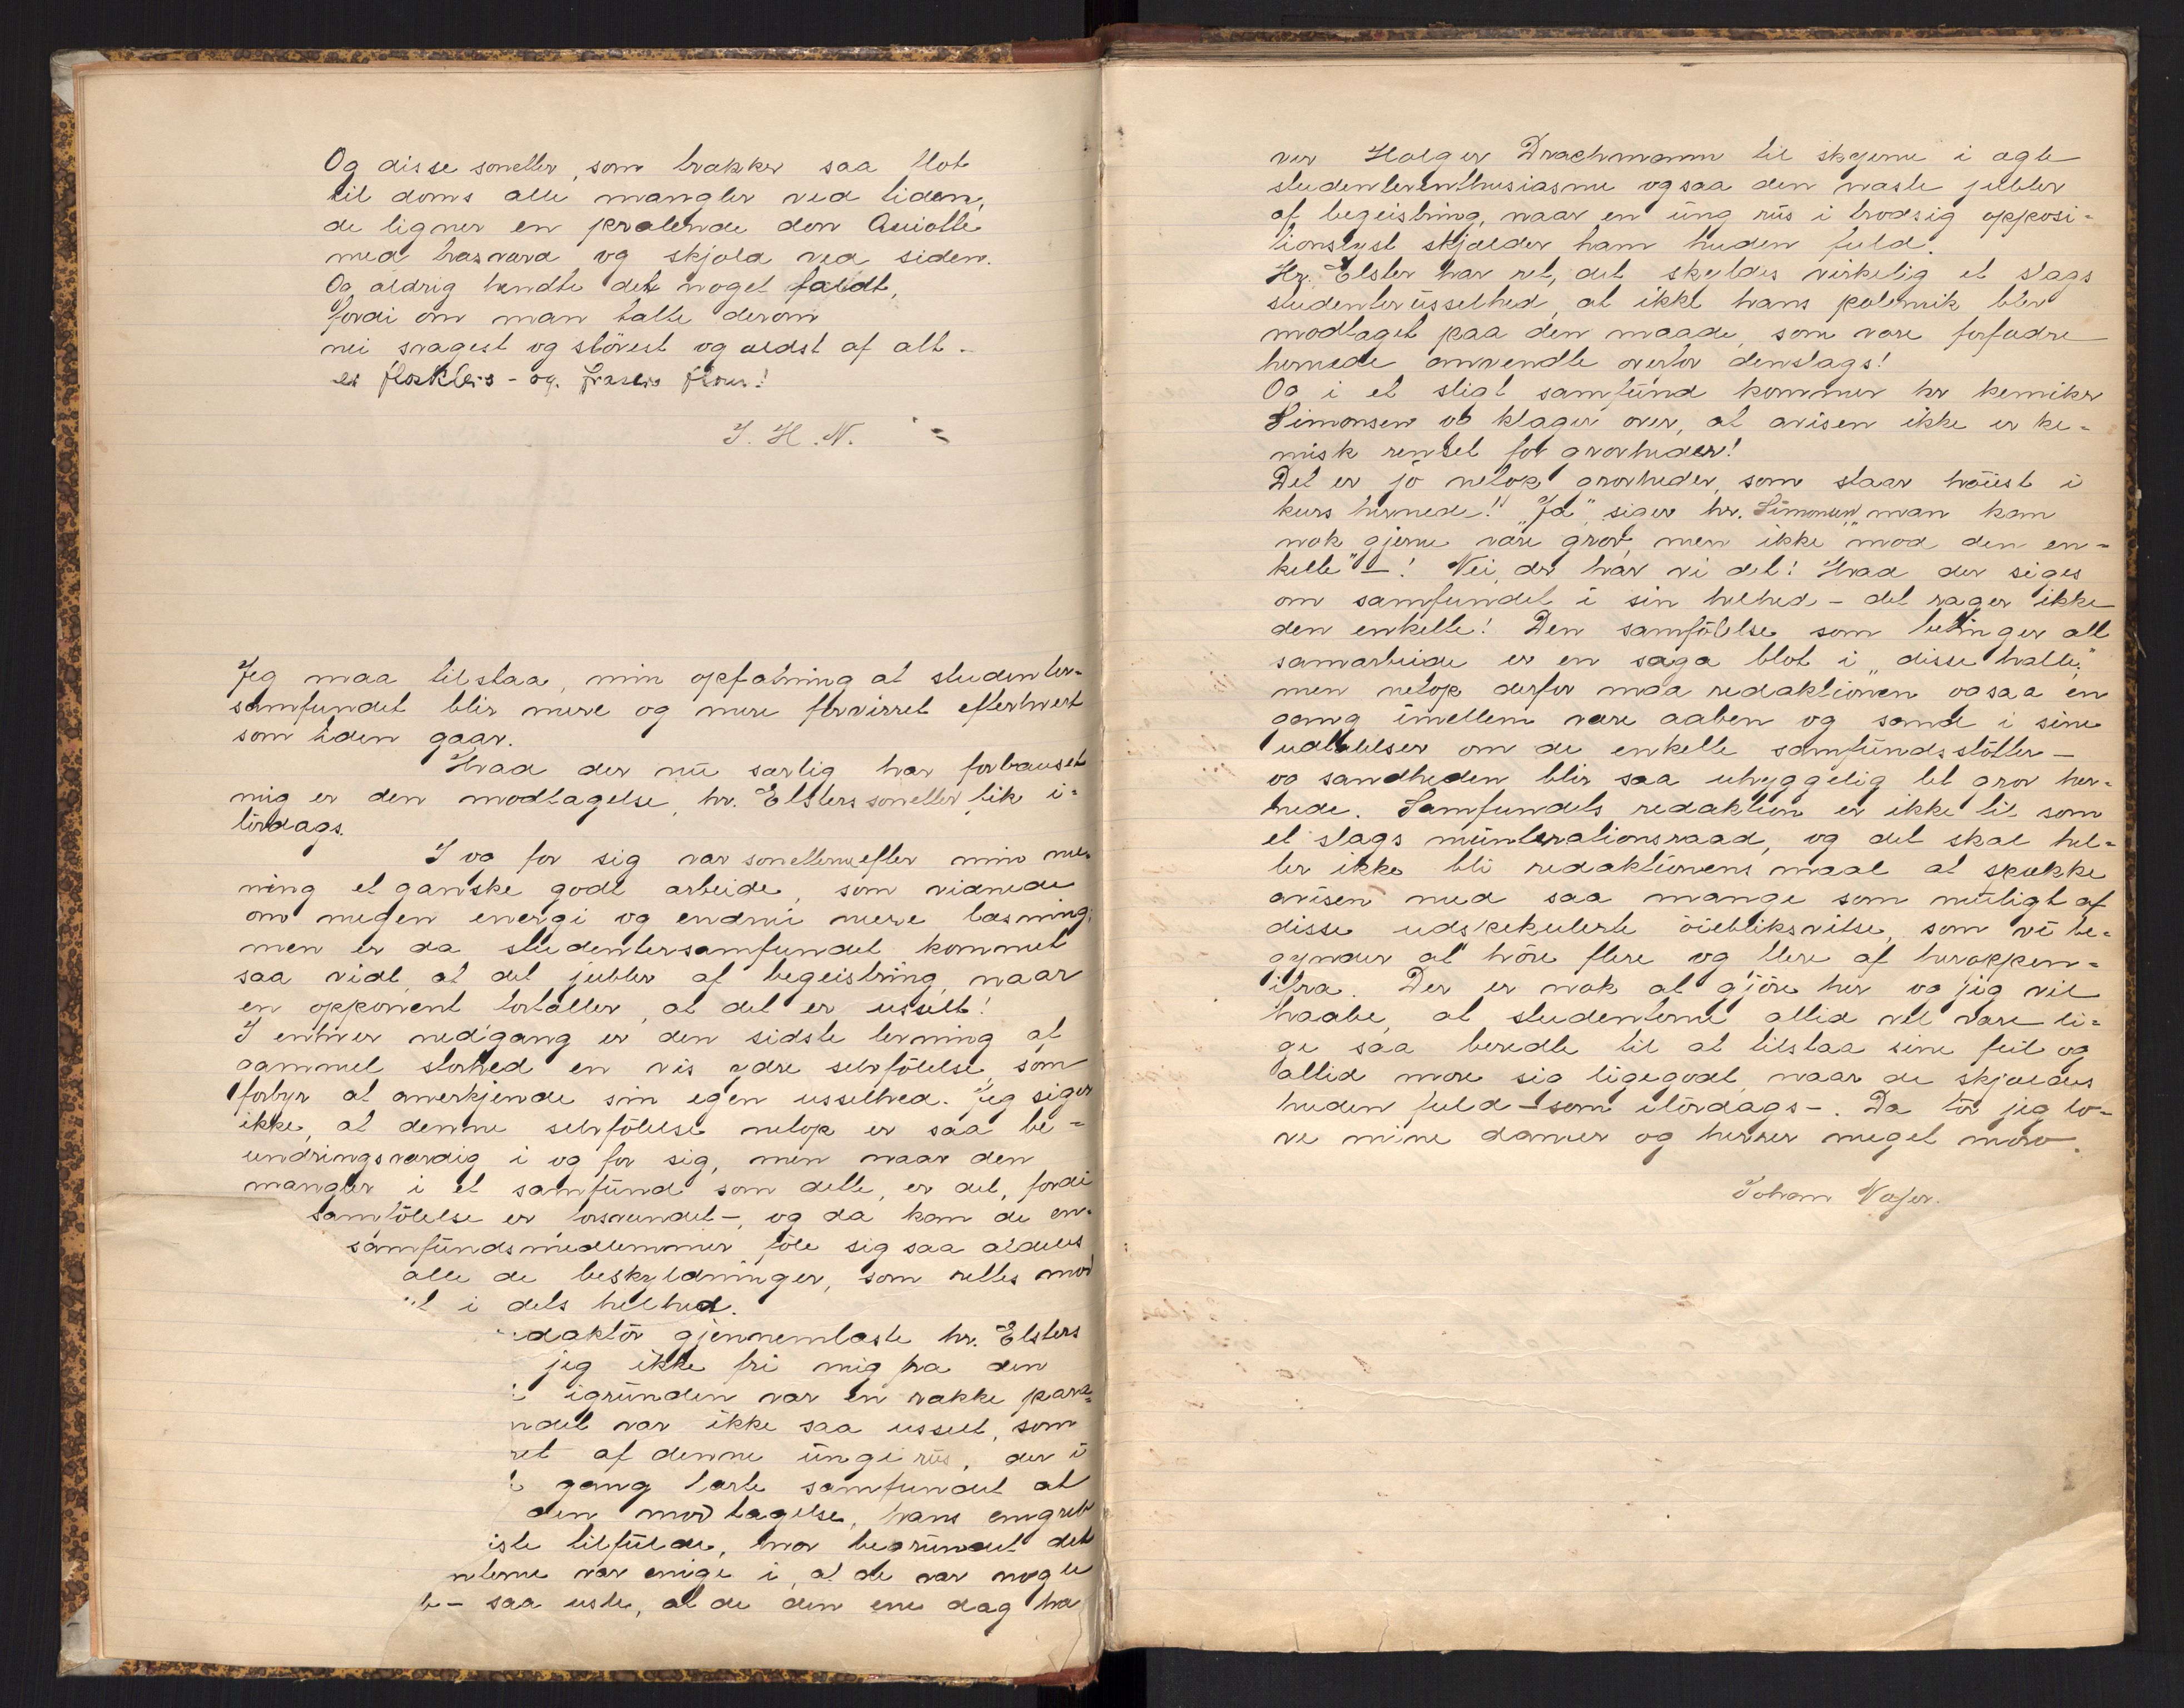 Og disse sonetter, som trækker saa flot
til doms alle mangler ved tiden,
de ligner en pralende don Quiotte
med træsværd og skjold ved siden.
Og aldrig hændte det noget faldt,
fordi om man talte derom
nei svagest og störest og ældst af alt -
er flosklers - og frasers flom!
J. H. N.
Jeg maa tilstaa, min opfatning af studenter-
samfundet blir mere og mere forvirret efterhvert
som tiden gaar.
Hvad der nu særlig har forbauset
mig er den modtagelse, hr. Elsters sonetter fik i-
lördags.
I og for sig var sonetterne efter min me-
ning et ganske godt arbeide, som vidnede
om megen energi og endnu mere læsning;
men er da studentersamfundet kommet
saa vidt, at det jubler af begeistring, naar
en opponent fortæller, at det er usselt!
I enhver nedgang er den sidste levning af
gammel storhed en vis ydre selvfölelse, som
forbyr at anerkjende sin egen usselhed. Jeg siger
ikke, at denne selvfölelse netop er saa be-
undringsværdig i og for sig, men naar den
mangler i et samfund som dette, er det, fordi
samfölelse er forsvundet -, og da kan de en-
samfundsmedlemmer föle sig saa aldeles
alle de beskyldninger, som rettes mod
i dets helhed.
edaktör gjennemlæste hr. Elsters
jeg ikke fri mig fra den
igrunden var en række para-
ndet var ikke saa usselt, som
ret af denne unge riis, der i
gang lærte samfundet at
den modtagelse, hans angreb
iste tilfulde, hvor begrundet det
nterne var enige i, at de var nogle
- saa usle, at de den ene dag hæ
ver Holger Drachmann til skyerne i ægte
studenterenthusiasme ogsaa den næste jubler
af begeistring, naar en ung riis i trodsig opposi-
tionslyst skjælder ham huden fuld.
Hr. Elster har ret, det skyldes virkelig et slags
studenterusselhed, at ikke hans polemik blev
modtaget paa den maade, som vore forfædre
hernede anvendte overfor denslags!
Og i et sligt samfund kommer hr kemiker
Simonsen og klager over, at avisen ikke er ke-
misk renset for grovheder!
Det er jo netop grovheder, som staar höiest i
kurs hernede! "Ja", siger hr. Simonsen, "man kan
nok gjerne være grov, men ikke mod den en-
kelte" - ! Nei, der har vi det! Hvad der siges
om samfundet i sin helhed - det rager ikke
den enkelte! Den samfölelse som betinger alt
samarbeide er en saga blot i "disse halle",
men netop derfor maa redaktionen ogsaa en
gang imellem være aaben og sande i sine
udtalelser om de enkelte samfundsstötter -
og sandheden blir saa uhyggelig let grov her-
nede. Samfundets redaktion er ikke til som
et slags munterationsraad, og det skal hel-
ler ikke bli redaktionens maal at spække
avisen med saa mange som muligt af
disse udspekulerte öiebliksvitse, som vi be-
gynder at höre flere og flere af heroppen-
ifra. Der er nok at gjöre her og jeg vil
haabe, at studenterne altid vil være li-
ge saa beredte til at tilstaa sine feil og
altid more sig ligegodt, naar de skjældes
huden fuld - som ilördags -. Da tör jeg lo-
ve mine damer og herrer meget moro.
Johan